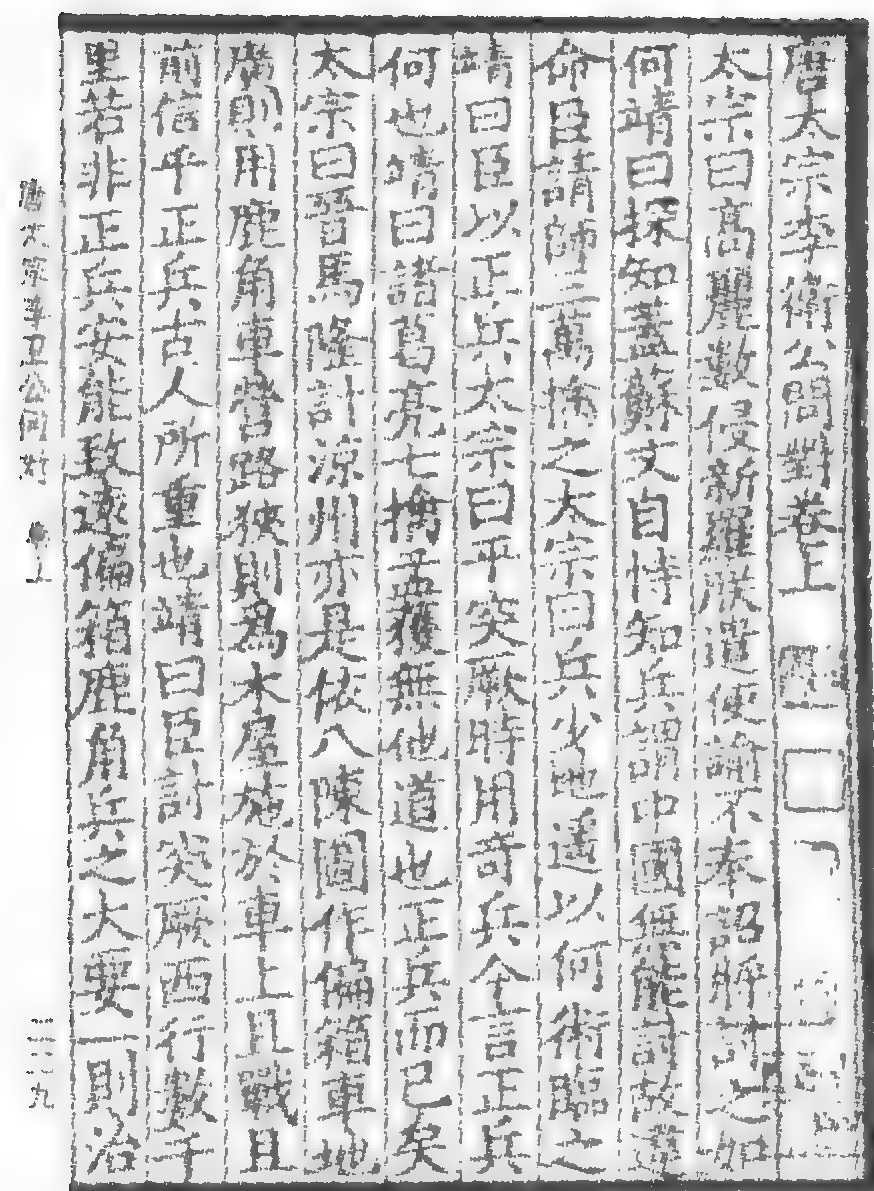 唐太宗李衛公問對卷上
太宗曰高麗數侵新羅朕遣使諭不奉詔將討之如
何靖曰探知蓋蘇文自恃知兵謂中國無能討故違
命臣請師三萬擒之太宗曰兵少地遙以何術臨之
靖曰臣以正兵太宗曰平突厥時用奇兵今言正兵
何也靖曰諸葛亮七擒孟獲無他道也正兵而已矣
太宗曰晉馬隆討涼州亦是依八陳圖作偏箱車地
廣則用鹿角車營路狹則爲木屋施於車上且戰且
前信乎正兵古人所重也靖曰臣討突厥西行數千
里若非正兵安能致遠偏箱鹿角兵之大要一則治
唐太宗李衛公問對
卷上